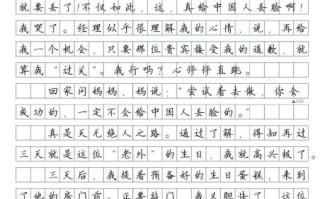 就要丢了！不仅如此，这，真给中国人丢脸啊！
我哭了。经理似乎很理解我的心情，说，再给
我一个机会，只要那位贵宾接受我的道歉，就
算我“过关”。我行吗？心怦怦直跳。
回家问妈妈，妈说：“尝试着去做，你会
成功的，一定不会给中国人丢脸的。
真是天无绝人之路。通过了解，得知再过
三天就是这位“老外”的生日，我就高兴极了。
三天后，我提着预备好的生日蛋糕，来到
了他的房门前。正要敲门，我又胆怯了，这位